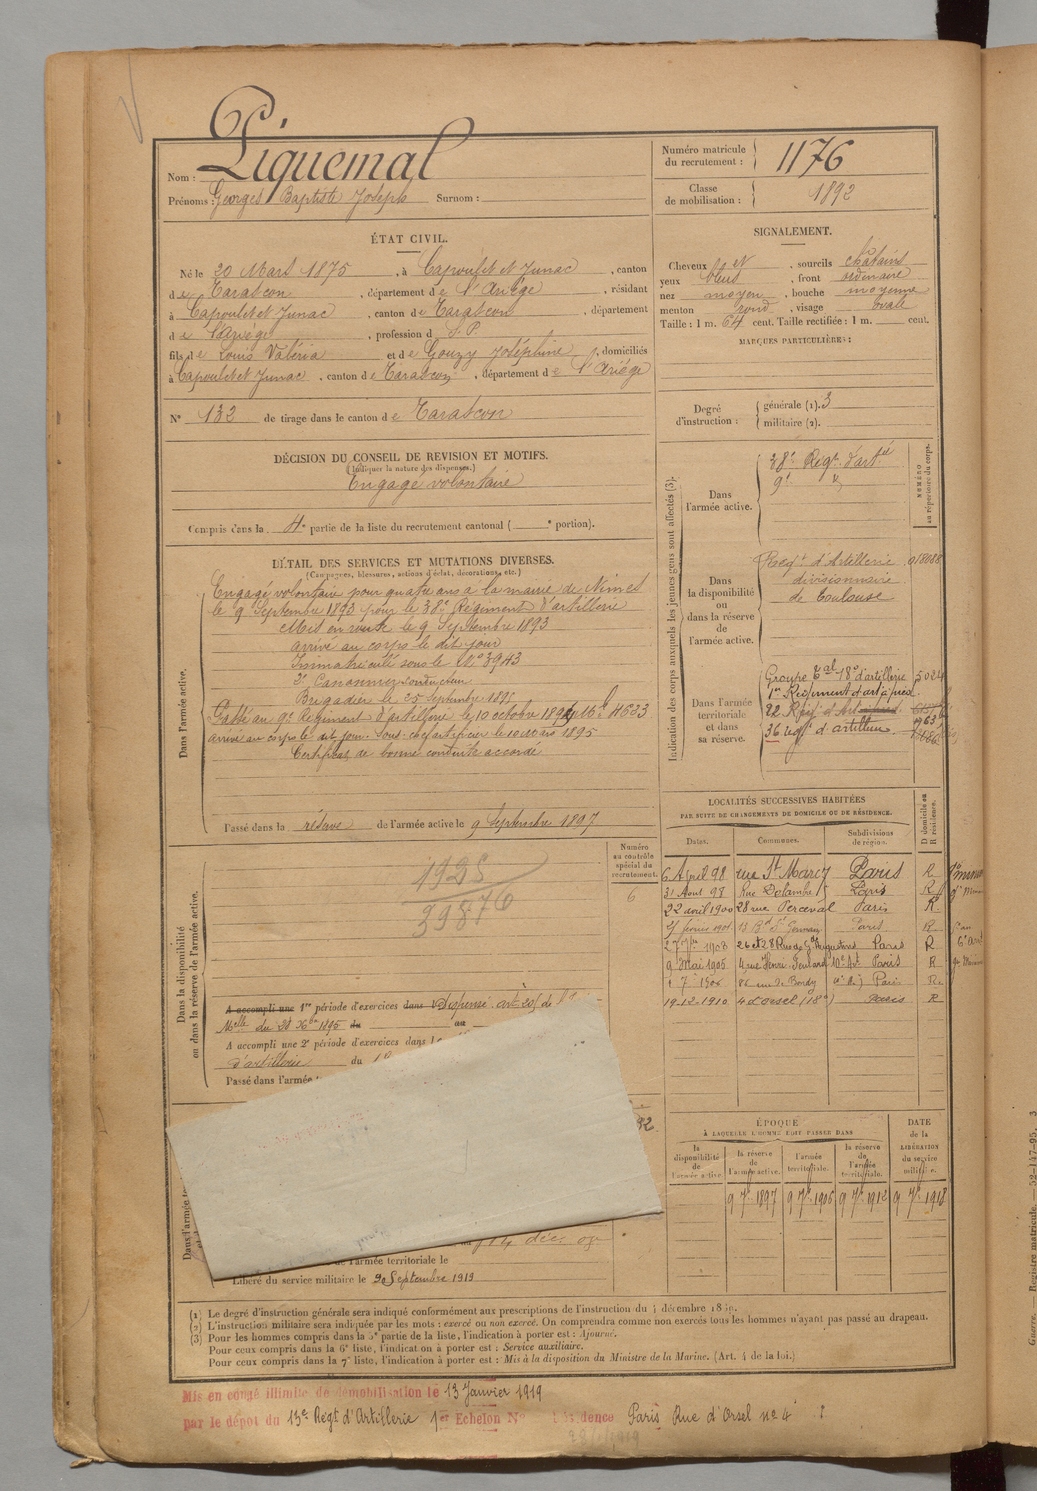 Piquemal
Nom :
Prénoms : Georges Baptiste Joseph Surnom :
Numéro matricule du recrutement : 1176
Classe de mobilisation : 1892
ÉTAT CIVIL.
Né le 20 Mars 1875, à Capoulet et Junac, canton
de Tarascon, département de l'Ariège, résidant
à Capoulet et Junac, canton de Tarascon, département
de l'Ariège, profession d S.P.
fils de Louis Valéria et de Gouzy Joséphine, domiciliés
à Capoulet et Junac, canton de Tarascon, département de l'Ariège
N° 132 de tirage dans le canton de Tarascon
SIGNALEMENT.
Cheveux et, sourcils châtains
yeux bleus, front ordinaire
nez moyen, bouche moyenne
menton rond, visage ovale
Taille : 1 m. 64 cent. Taille rectifiée : 1 m. cent.
MARQUES PARTICULIÈRES :
Degré d'instruction : générale (1). 3
militaire (2).
DÉCISION DU CONSEIL DE REVISION ET MOTIFS.
(Indiquer la nature des dispenses.)
Engagé volontaire
Compris dans la 4e partie de la liste du recrutement cantonal ( e portion).
DÉTAIL DES SERVICES ET MUTATIONS DIVERSES.
(Campagnes, blessures, actions d'éclat, décorations, etc.)
Dans l'armée active.
Engagé volontaire pour quatre ans à la mairie de Nimes
le 9 Septembre 1893 pour le 38e Régiment d'artillerie
Mis en route le 9 Septembre 1893
arrivé au corps le dit jour
Immatriculé sous le No 3943
2e Canonnier conducteur
Brigadier le 25 Septembre 1895
Passé au 9e Régiment d'artillerie le 10 octobre 1894 Mle 4623
arrivé au corps le dit jour. Sous chef artificier le 10 Mars 1895
Certificat de bonne conduite accordé
Passé dans la réserve de l'armée active le 9 Septembre 1897
Indication des corps auxquels les jeunes gens sont affectés (3).
NUMÉRO au répertoire du corps.
Dans l'armée active.
38e Regt d'artie
9e
Dans la disponibilité ou dans la réserve de l'armée active.
Regt d'Artillerie 018088
divisionnaire
de Toulouse
Dans l'armée territoriale et dans sa réserve.
Groupe Tal 18e d'artillerie 5024
1er Régiment d'art à pied
36 regt d'artillerie
LOCALITÉS SUCCESSIVES HABITÉES
PAR SUITE DE CHANGEMENTS DE DOMICILE OU DE RÉSIDENCE.
D domicile ou R résidence.
Dates. Communes. Subdivisions de région.
6 Avril 98 rue St Marcy Paris R
31 Aout 98 Rue Delambre Paris R
22 avril 1900 28 rue Perceval Paris R
Bd St Germain Paris R
27 1903 26 et 28 Rue des Gds Augustins Paris R
9 Mai 1905 4 rue Henri 10e Art Paris R
7 1906 rue de Bondy Paris R
19.12.1910 4 d'Orsel (18e) Paris R
Dans la disponibilité ou dans la réserve de l'armée active.
Numéro au contrôle spécial du recrutement.
6
1925
39876
A accompli une 1re période d'exercices dans Dispensé art 205 de
Melle du 28 Xbre 1895 du au
A accompli une 2e période d'exercices dans l
d'artillerie du
Passé dans l'armée
ÉPOQUE
À LAQUELLE L'HOMME DOIT PASSER DANS
la disponibilité de l'armée active.
la réserve de l'armée active.
l'armée territoriale.
la réserve de l'armée territoriale.
DATE de la LIBÉRATION du service militaire.
9 7bre 1897 9 7bre 1906 9 7bre 1912 9 7bre 1918
de l'armée territoriale le
Libéré du service militaire le 20 Septembre 1919
(1) Le degré d'instruction générale sera indiqué conformément aux prescriptions de l'instruction du 4 décembre 1889.
(2) L'instruction militaire sera indiquée par les mots : exercé ou non exercé. On comprendra comme non exercés tous les hommes n'ayant pas passé au drapeau.
(3) Pour les hommes compris dans la 5e partie de la liste, l'indication à porter est : Ajourné.
Pour ceux compris dans la 6e liste, l'indication à porter est : Service auxiliaire.
Pour ceux compris dans la 7e liste, l'indication à porter est : Mis à la disposition du Ministre de la Marine. (Art. 4 de la loi.)
Mis en congé illimité de démobilisation le 13 Janvier 1919
par le dépôt du 13e Régt d'Artillerie 1er Echelon N° Résidence Paris Rue d'Orsel no 4
Guerre. — Registre matricule. — 52-147-95. 3